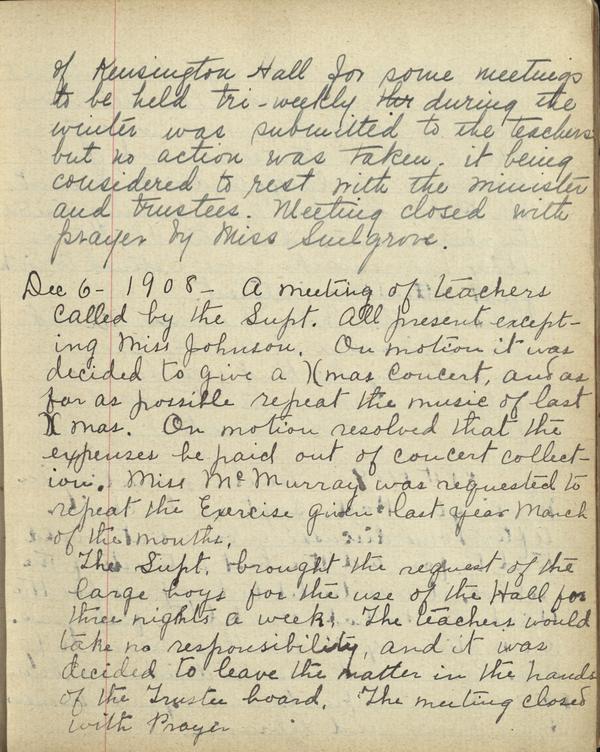 of Kensington Hall for some meetings
to be held tri-weekly during the
winter was submitted to the teachers
but no action was taken. it being
considered to rest with the minister
and trustees. Meeting closed with
prayer by Miss Snelgrove.
Dec 6 - 1908 - A meeting of teachers
called by the Supt. All present except-
ing Miss Johnson. On motion it was
decided to give a Xmas Concert, and as
far as possible repeat the music of last
Xmas. On motion resolved that the
expenses be paid out of concert collect-
ion. Miss McMurray was requested to
repeat the Exercise given last year March
of the months.
The Supt. brought the request of the
large boys for the use of the Hall for
three nights a week. The teachers would
take no responsibility, and it was
decided to leave the matter in the hands
of the Trustee board. The meeting closed
with Prayer